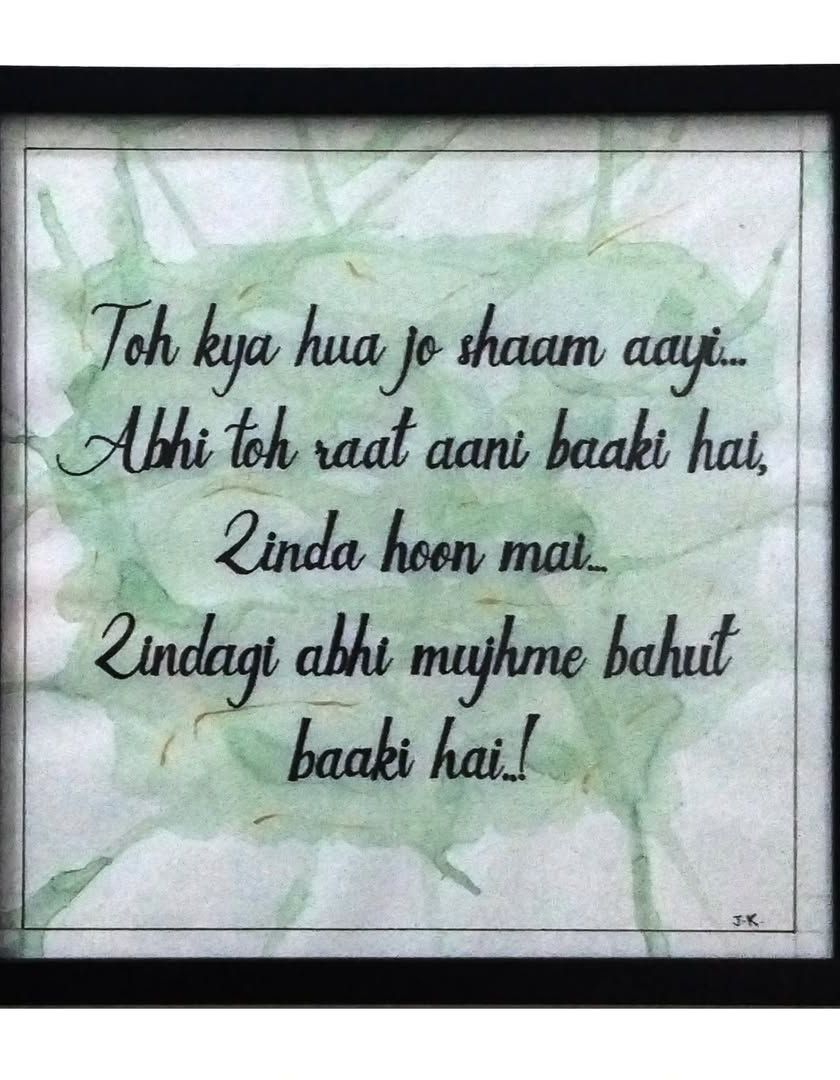 Toh kya hua jo shaam aayi...
Abhi toh raat aani baaki hai,
Zinda hoon mai...
Zindagi abhi mujhme bahut
baaki hai..!
J.K.